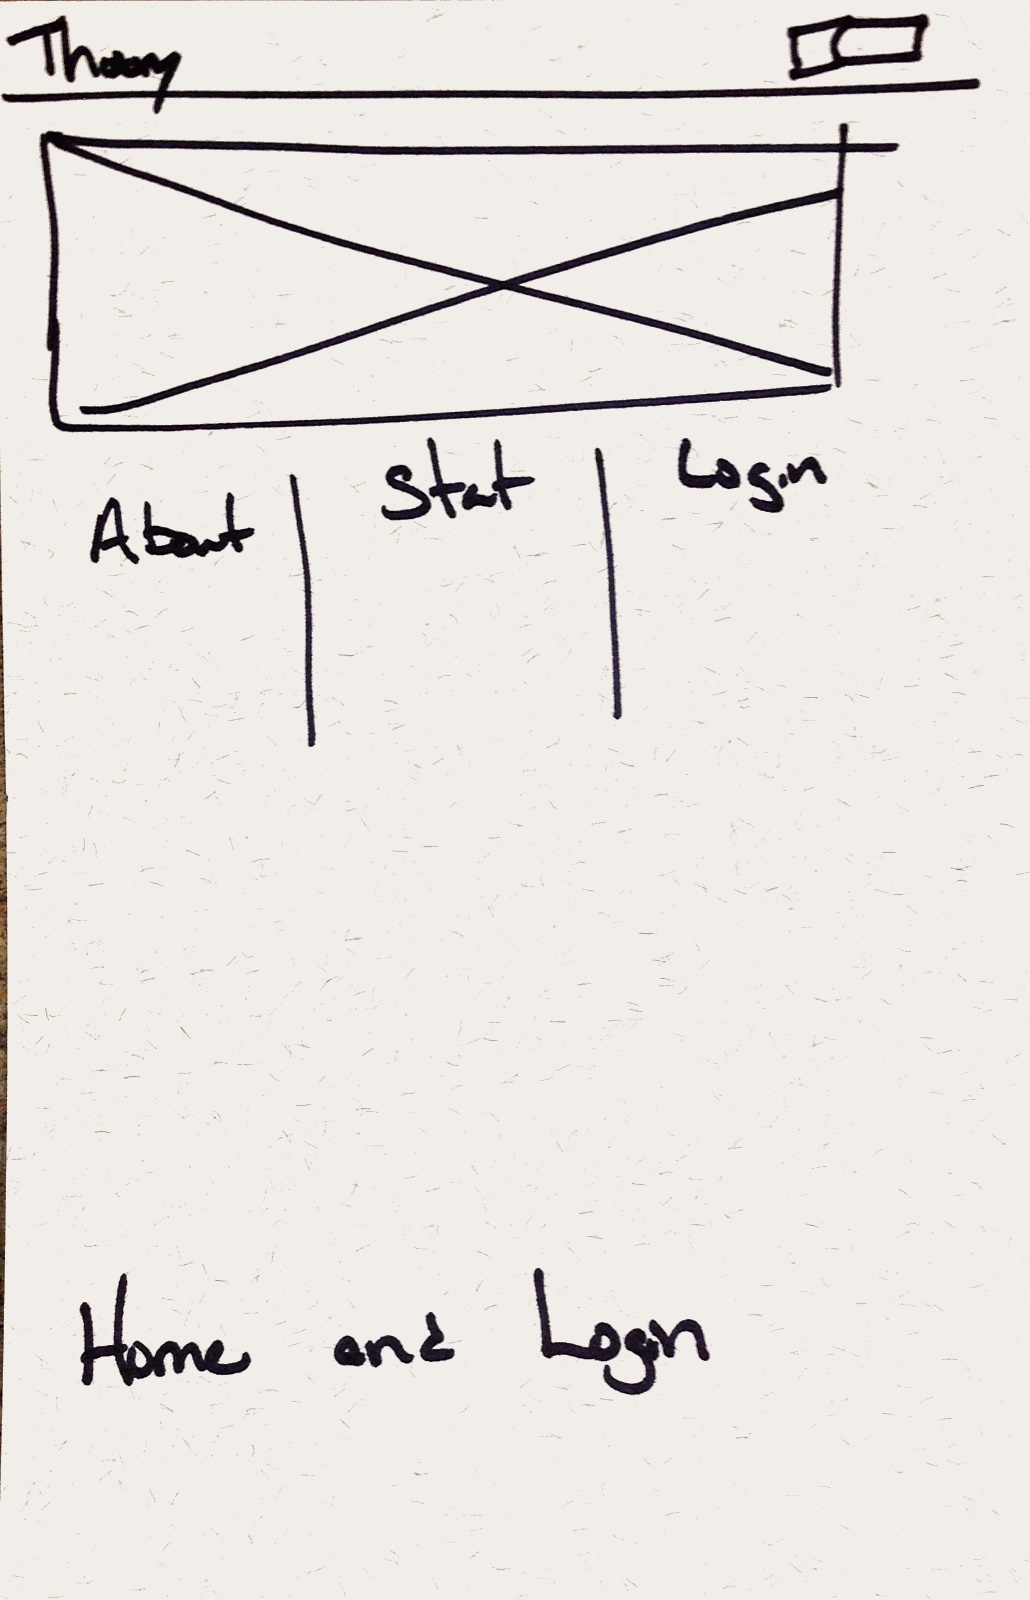 Theory
About Stat Login
Home and Login